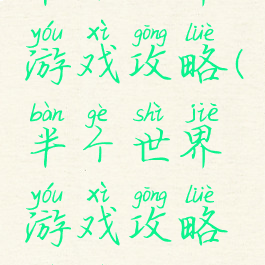 yóu xì gōng lüè
游戏攻略(
bàn gè shì jiè
半个世界
yóu xì gōng lüè
游戏攻略